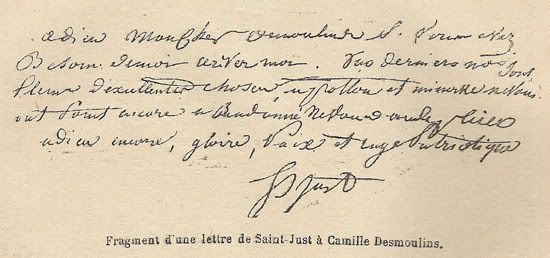 adieu mon cher desmoulins Si vous avez
Besoin de moi ecrivez moi. Vos derniers nos sont
pleins d'excellentes choses apollon et minerve ne vous
ont point encore abandonné ne vous en
adieu encore, gloire, paix et rage patriotique
St Just
Fragment d'une lettre de Saint-Just à Camille Desmoulins.